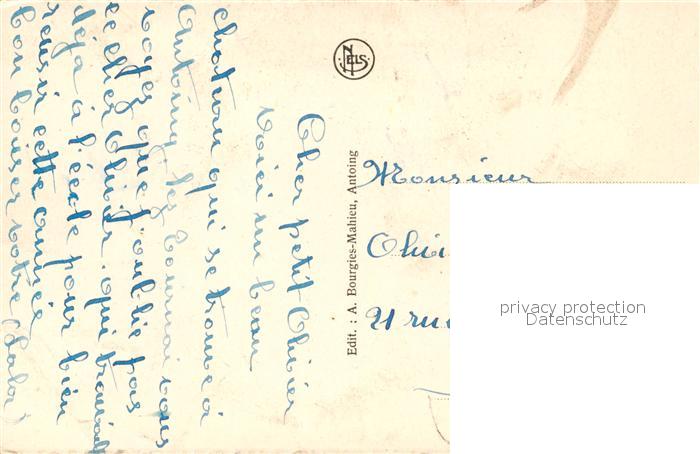 Cher petit Olivier
Voici un beau
chateau qui se trouve à
Antoing lez Tournai vous
voyez que j'oublie pas
le cher Olivier. qui travaille
déjà à l'école pour bien
réussir cette année
bon baiser votre
NELS
Edit. : A. Bourgies-Mahieu, Antoing
Monsieur
Olivi
21 rue
privacy protection
Datenschutz